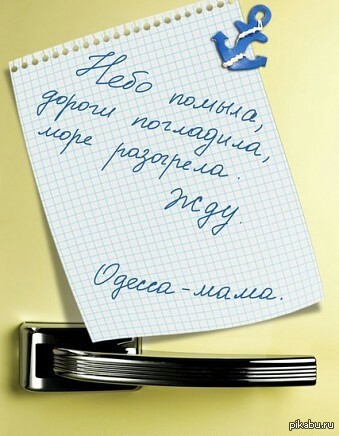 Небо помыла,
дороги погладила,
море разогрела.
Жду.
Одесса-мама.
pikabu.ru